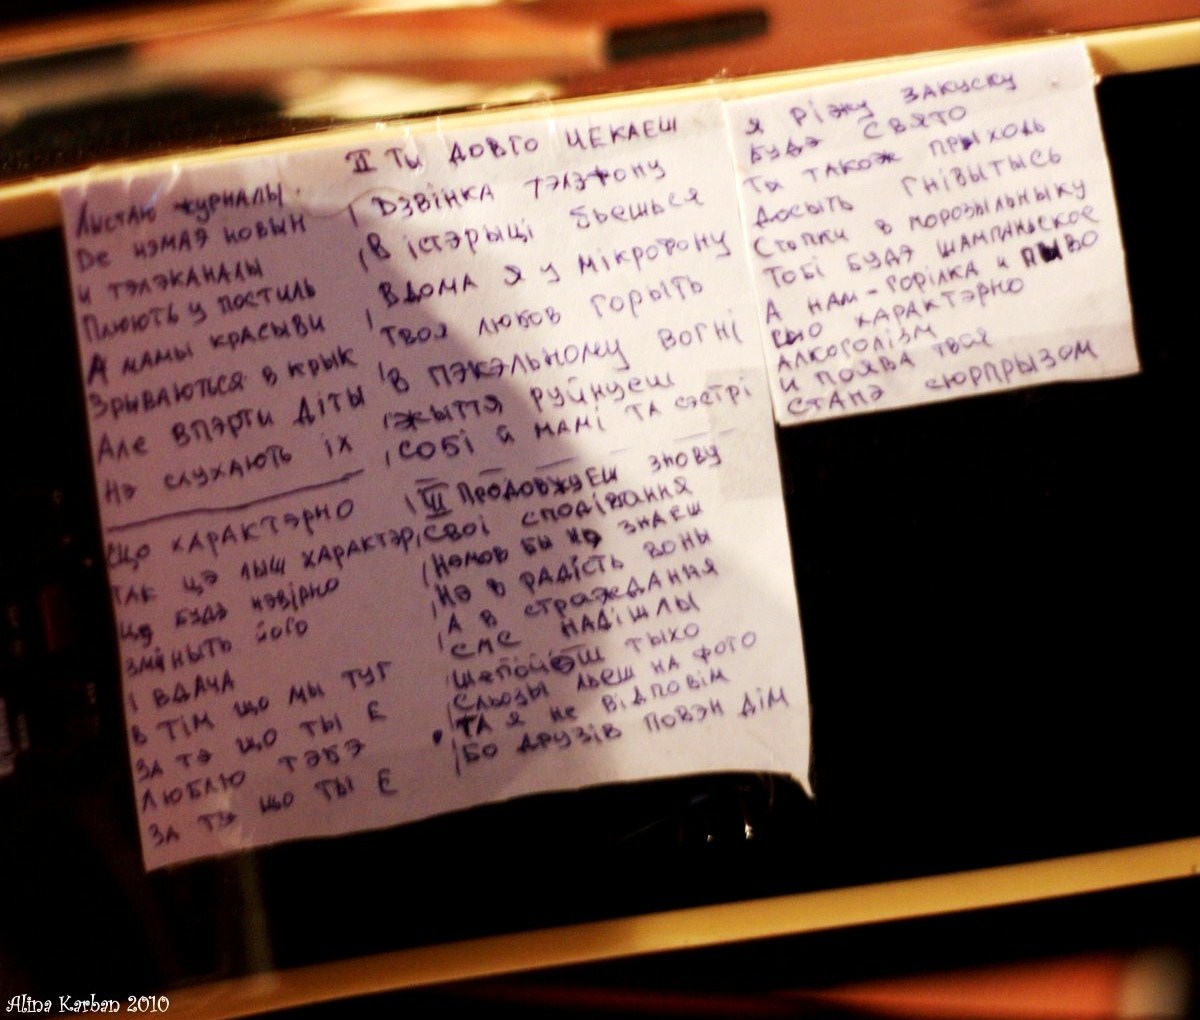 Лыстаю журналы
Дє нэмаэ новын
и тэлэканалы
Плюють у постиль
А мамы красыви
Зрываються в крык
Але впэрти діты
Нэ слухають їх
Що характэрно
Так цэ лыш характэр
Цэ будэ нэвірно
Зміныть його
І вдача
в тім що мы тут
За тэ що ты є
Люблю тэбэ
За тэ що ты є
II Ты довго чекаеш
Дзвінка тэлэфону
В істэрыці бьешься
Вдома я у мікрофону
Твоя любов горыть
В пэкэльному вогні
Жыття руйнуеш
Собі й мамі та сэстрі
III Продовжуеш знову
Свої сподівання
Нэмов бы нэ знаеш
Нэ в радість воны
А в страждання
СМС надішлы
тыхо
Сльозы льеш на фото
Та я не відповім
Бо друзів повэн дім
Я ріжу закуску
Будэ свято
Ты також прыходь
Досыть гнівытысь
Стопки в морозыльныку
Тобі будэ шампаньское
А нам - горілка и пыво
Сцо характэрно
Алкоголізм
и поява твоя
Станэ сюрпрызом
Alina Karban 2010